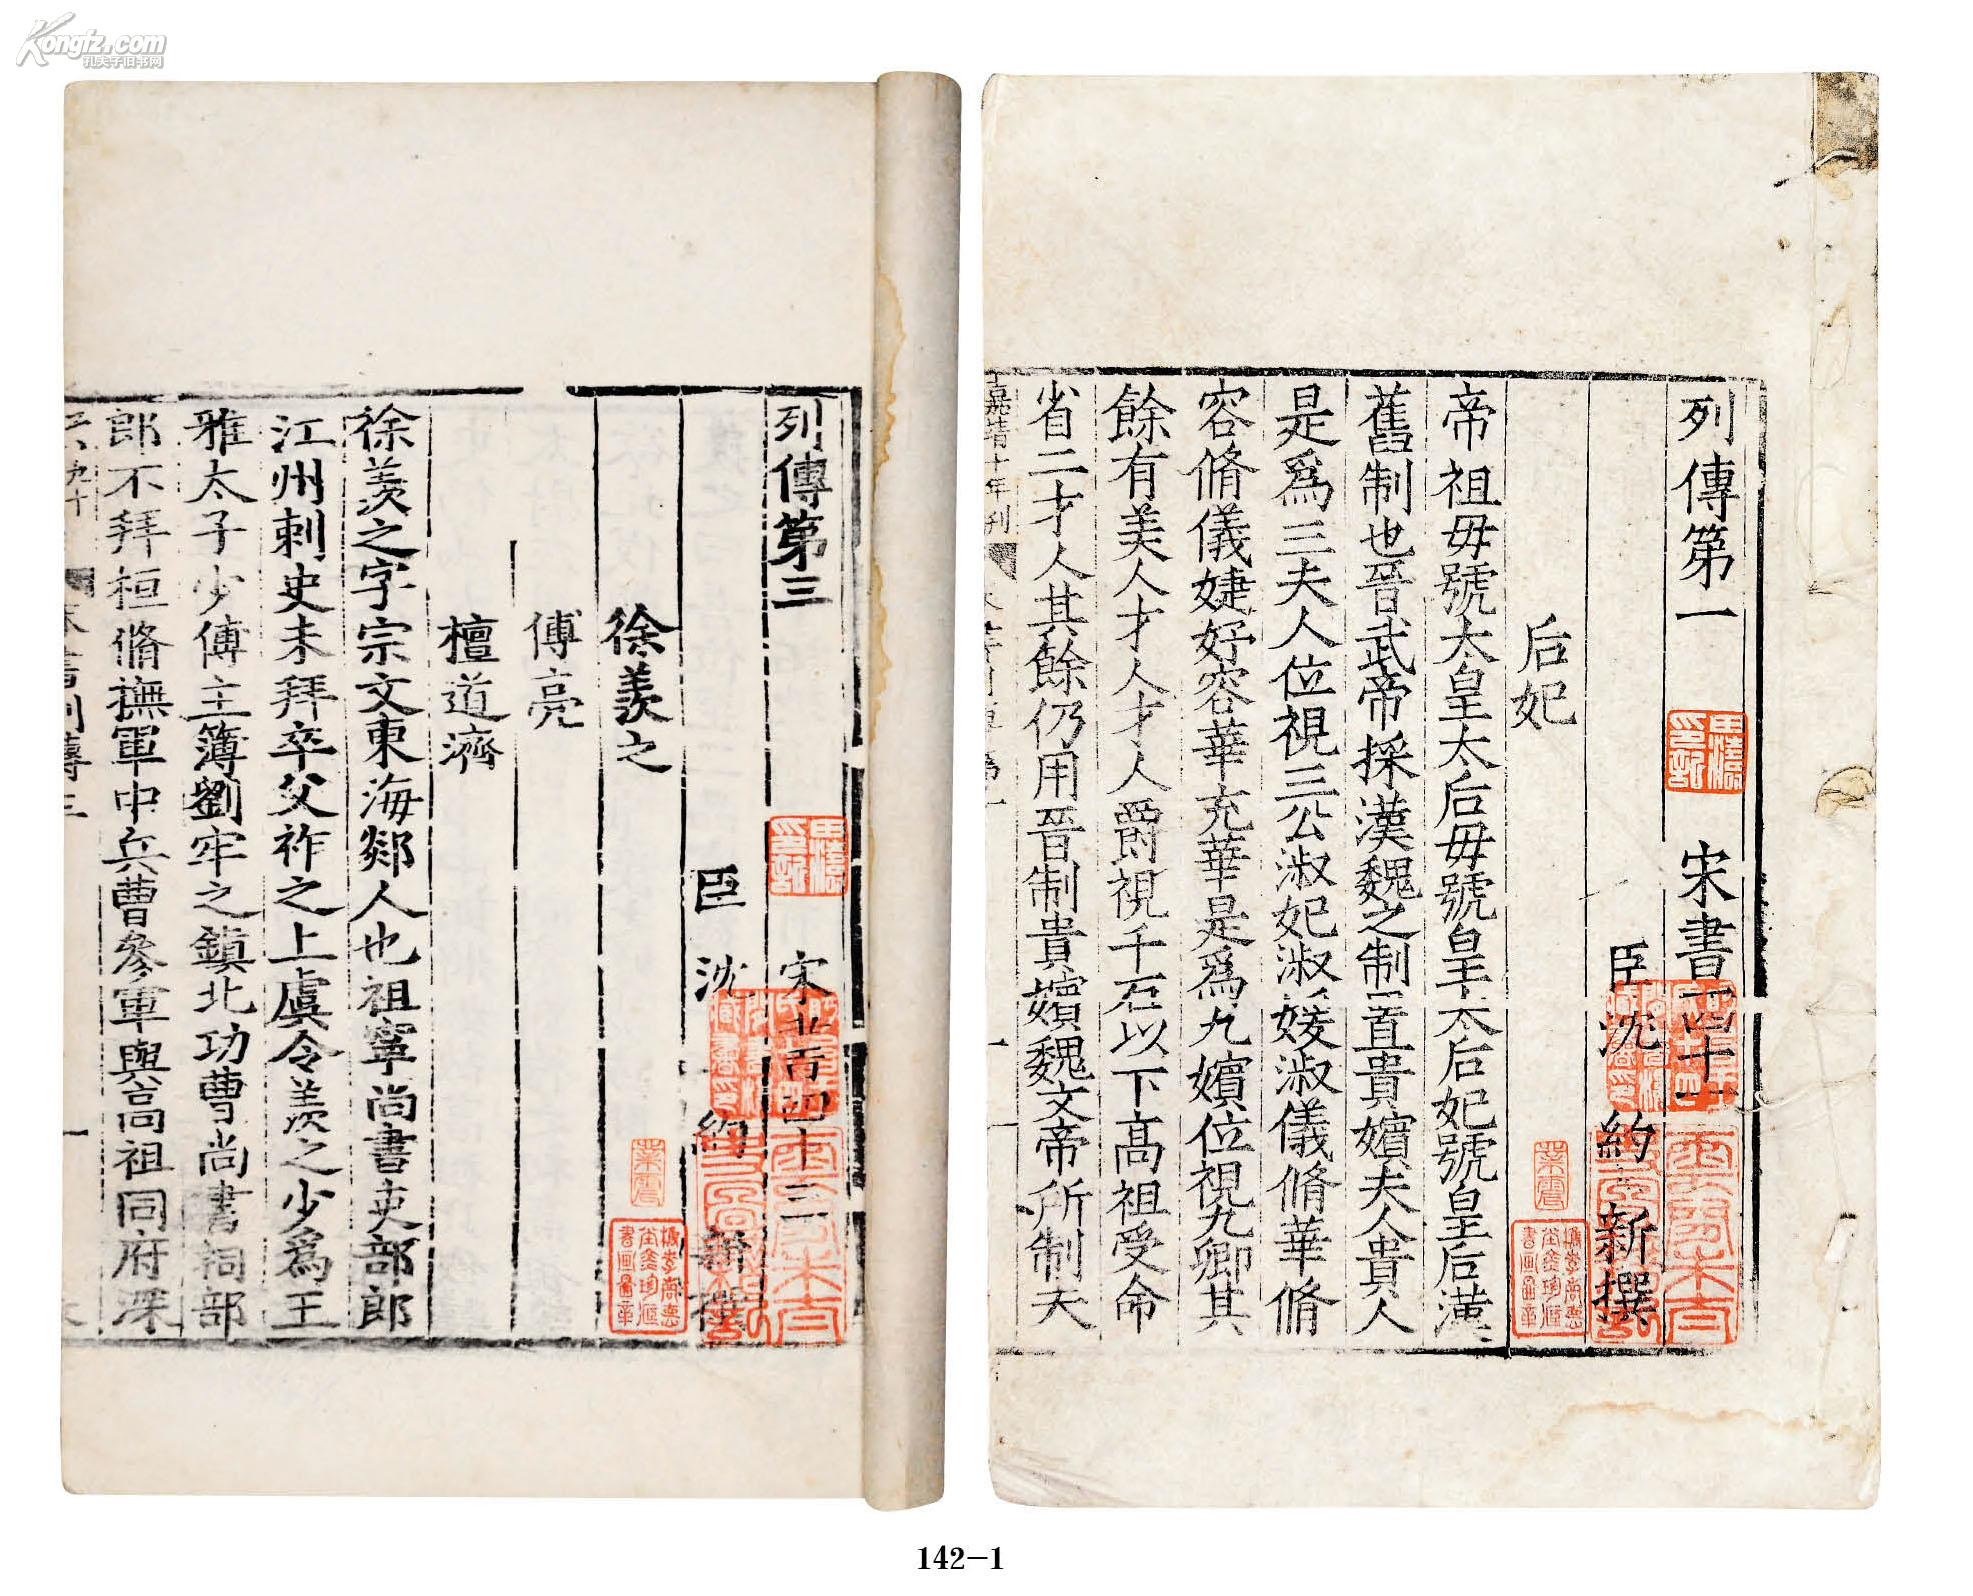 Kongfz.com
孔夫子旧书网
列傳第一 宋書四十一
臣沈約新撰
后妃
帝祖毋號太皇太后毋號皇太后妃號皇后漢
舊制也晉武帝採漢魏之制置貴嬪夫人貴人
是爲三夫人位視三公淑妃淑媛淑儀脩華脩
容脩儀婕妤容華充華是爲九嬪位視九卿其
餘有美人才人才人爵視千石以下高祖受命
省二才人其餘仍用晉制貴嬪魏文帝所制夫
嘉靖十年刊
列傳第三 宋書四十三
臣沈約新撰
徐羨之
傅亮
檀道濟
徐羨之字宗文東海郯人也祖寧尚書吏部郎
江州刺史未拜卒父祚之上虞令羨之少爲王
雅太子少傅主簿劉牢之鎮北功曹尚書祠部
郎不拜桓脩撫軍中兵曹參軍與高祖同府深
書列傳三 一
142-1